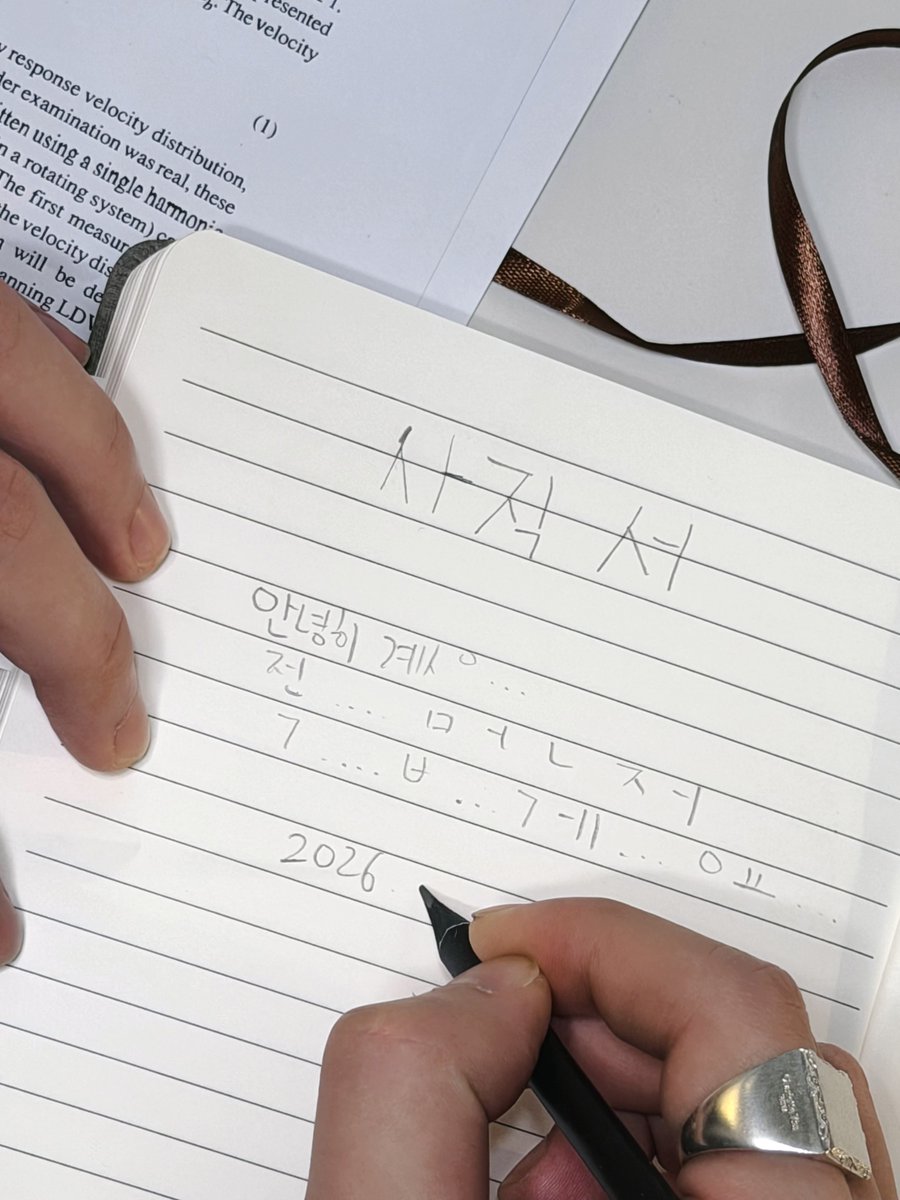 1.
presented
g. The velocity
y response velocity distribution,
der examination was real, these
tten using a single harmonic
n a rotating system) c
The first measur
the velocity dis
will be de
anning LDV
(1)
사직서
안녕히 계시ㅇ...
전 .... ㅁ ㅓ ㄴ ㅈ ㅓ
ㄱ .... ㅂ ... ㄱ ㅔ ... ㅇ ㅛ ....
2026.